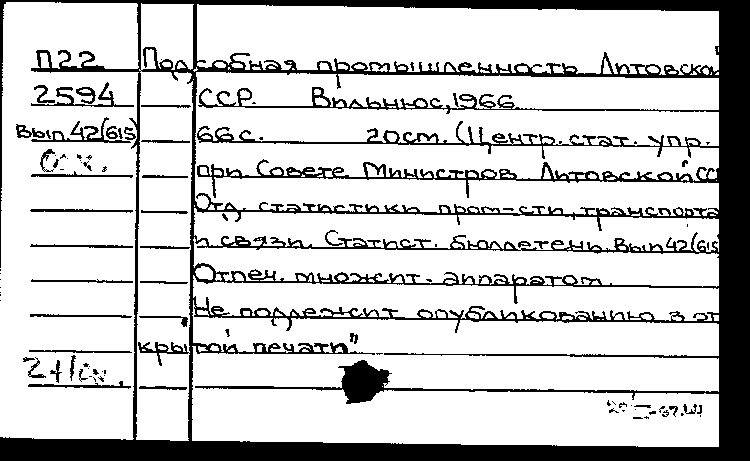 П22 Подсобная промышленность Литовской
2594 ССР. Вильнюс, 1966
Вып. 42(615) 66 с. 20 см. (Центр. стат. упр.
при Совете Министров Литовской СС
Отд. статистики пром-сти, транспорта
и связи. Статист. бюллетень. Вып 42(615
Отпеч. множит. аппаратом.
"Не подлежит опубликованию в от
крытой печати"